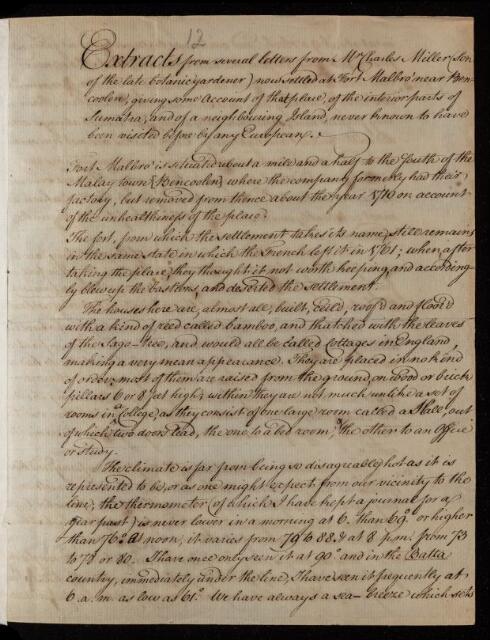 12
Extracts from several letters from Mr Charles Miller (Son
of the late botanic gardener) now settled at Fort Malbro' near Ben-
coolen, giving some Account of that place, of the interior parts of
Sumatra, and of a neighbouring Island, never known to have
been visited before by any European.
Fort Malbro' is situated about a mile and a half to the South of the
Malay town (Bencoolen) where the company formerly had their
factory, but removed from thence about the year 1710 on account
of the unhealthiness of the place.
The fort, from which the settlement takes its name, still remains
in the same state in which the French left it in 1761; when, after
taking the place, they thought it not worth keeping, and according-
ly blew up the bastions, and deserted the settlement.
The houses here are, almost all, built, ceild, roof'd and floor'd
with a kind of reed called bamboo, and thatched with the leaves
of the Sago-tree, and would all be called Cottages in England,
making a very mean appearance. They are placed in no kind
of order; most of them are raised from the ground, on wood or brick
pillars 6 or 8 feet high; within they are not much unlike a set of
rooms in a College, as they consist of one large room called a Hall, out
of which two doors lead, the one to a bed room, & the other to an Office
or Study.
The climate is far from being so disagreeably hot as it is
represented to be, or as one might expect from our vicinity to the
line; the thermometer (of which I have kept a journal for a
year past) is never lower in a morning at 6. than 69.° or higher
than 76.° at noon, it varies from 79 to 88. & at 8 p.m. from 73
to 78 or 80. I have once only seen it at 90.° and in the Batta
country, immediately under the line, I have seen it frequently at
6. a.m. as low as 61.° We have always a sea-breeze which sets